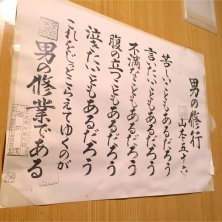 男の修行
山本五十六
苦しいこともあるだろう
言いたいこともあるだろう
不満なこともあるだろう
腹の立つこともあるだろう
泣きたいこともあるだろう
これをじっとこらえてゆくのが
男の修業である